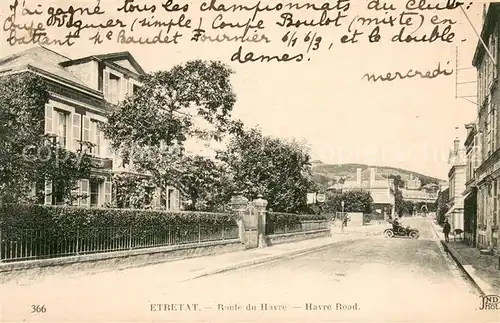 j'ai gagné tous les championnats du Club:
Coupe (simple) Coupe Boulot (mixte) en
battant Me Baudet Fournier 6/1 6/3, et le double
dames.
mercredi
366
ETRETAT. — Route du Havre — Havre Road.
ND
Phot